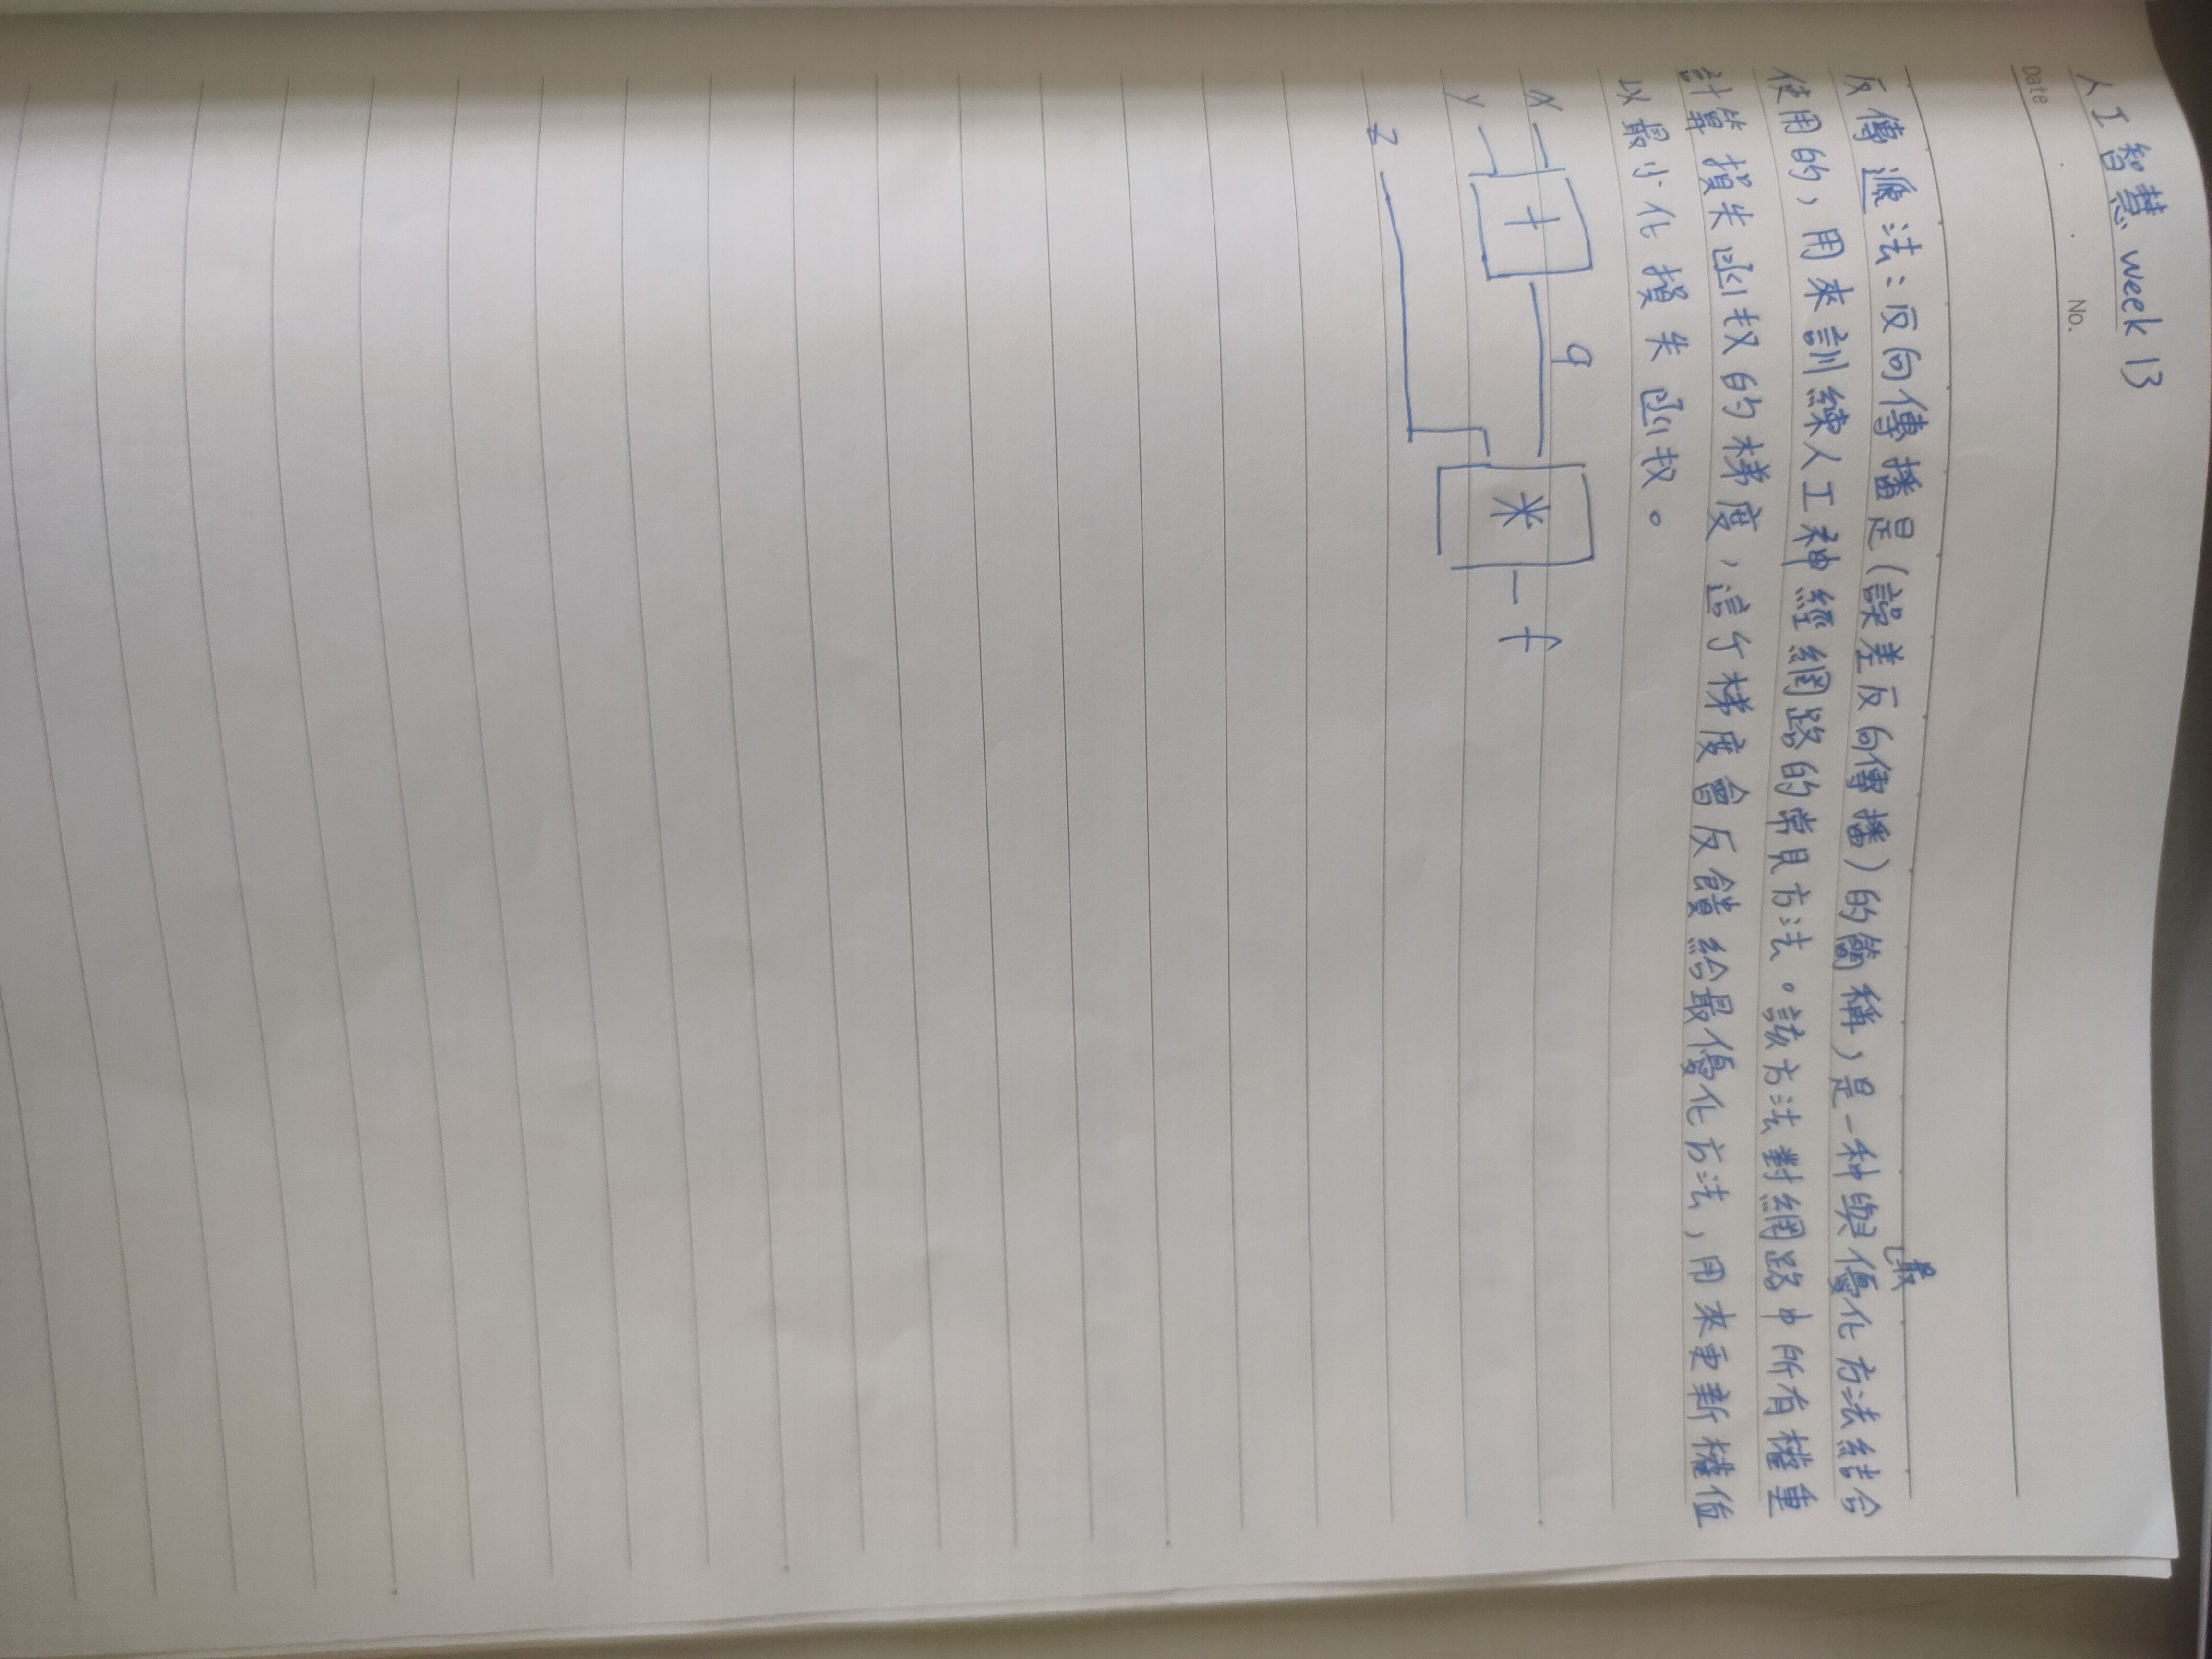 人工智慧 week 13
Date . . No.
反傳遞法:反向傳播是(誤差反向傳播)的簡稱,是一种與最優化方法結合
使用的,用來訓練人工神經網路的常見方法。該方法對網路中所有權重
計算損失函权的梯度,這个梯度會反饋給最優化方法,用來更新權值
以最小化損失函权。
x + q * f
y
z